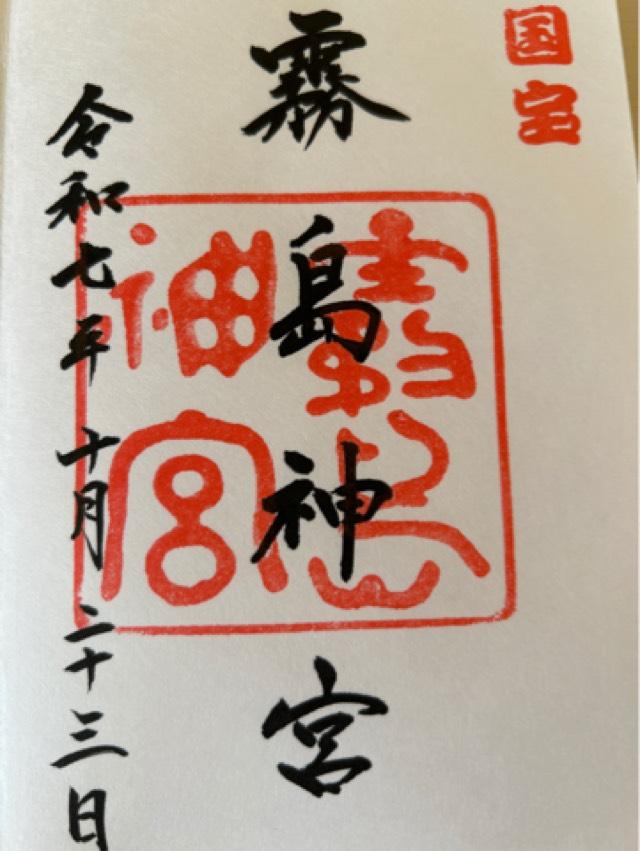 国宝
霧島神宮
霧島
神宮
令和七年十月二十三日